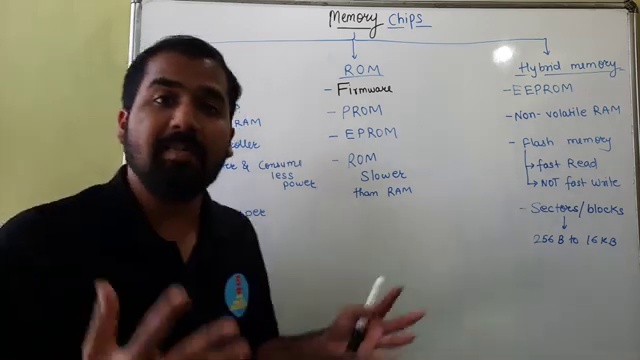 Memory Chips
RAM
& Consume
less
power
ROM
- Firmware
- PROM
- EPROM
- ROM
Slower
than RAM
Hybrid memory
- EEPROM
- Non-volatile RAM
- Flash memory
→ fast Read
→ NOT fast write
- Sectors/blocks
256 B to 16 KB